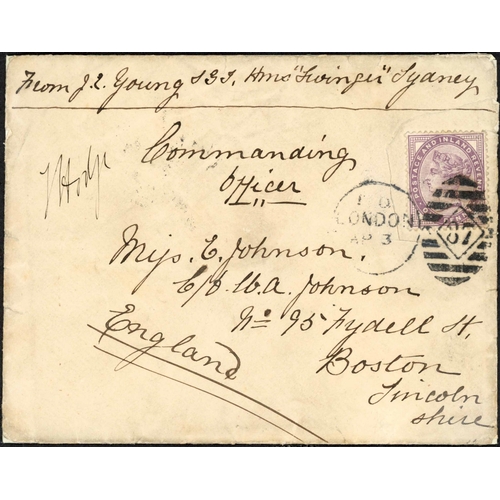 From J.C. Young S B S, Hms "Swinger" Sydney
Commanding
Officer
POSTAGE AND INLAND REVENUE
LONDON
AP 3
87
Miss E. Johnson,
C/o W.A. Johnson
No 95 Fydell St,
Boston
Lincoln
shire
England